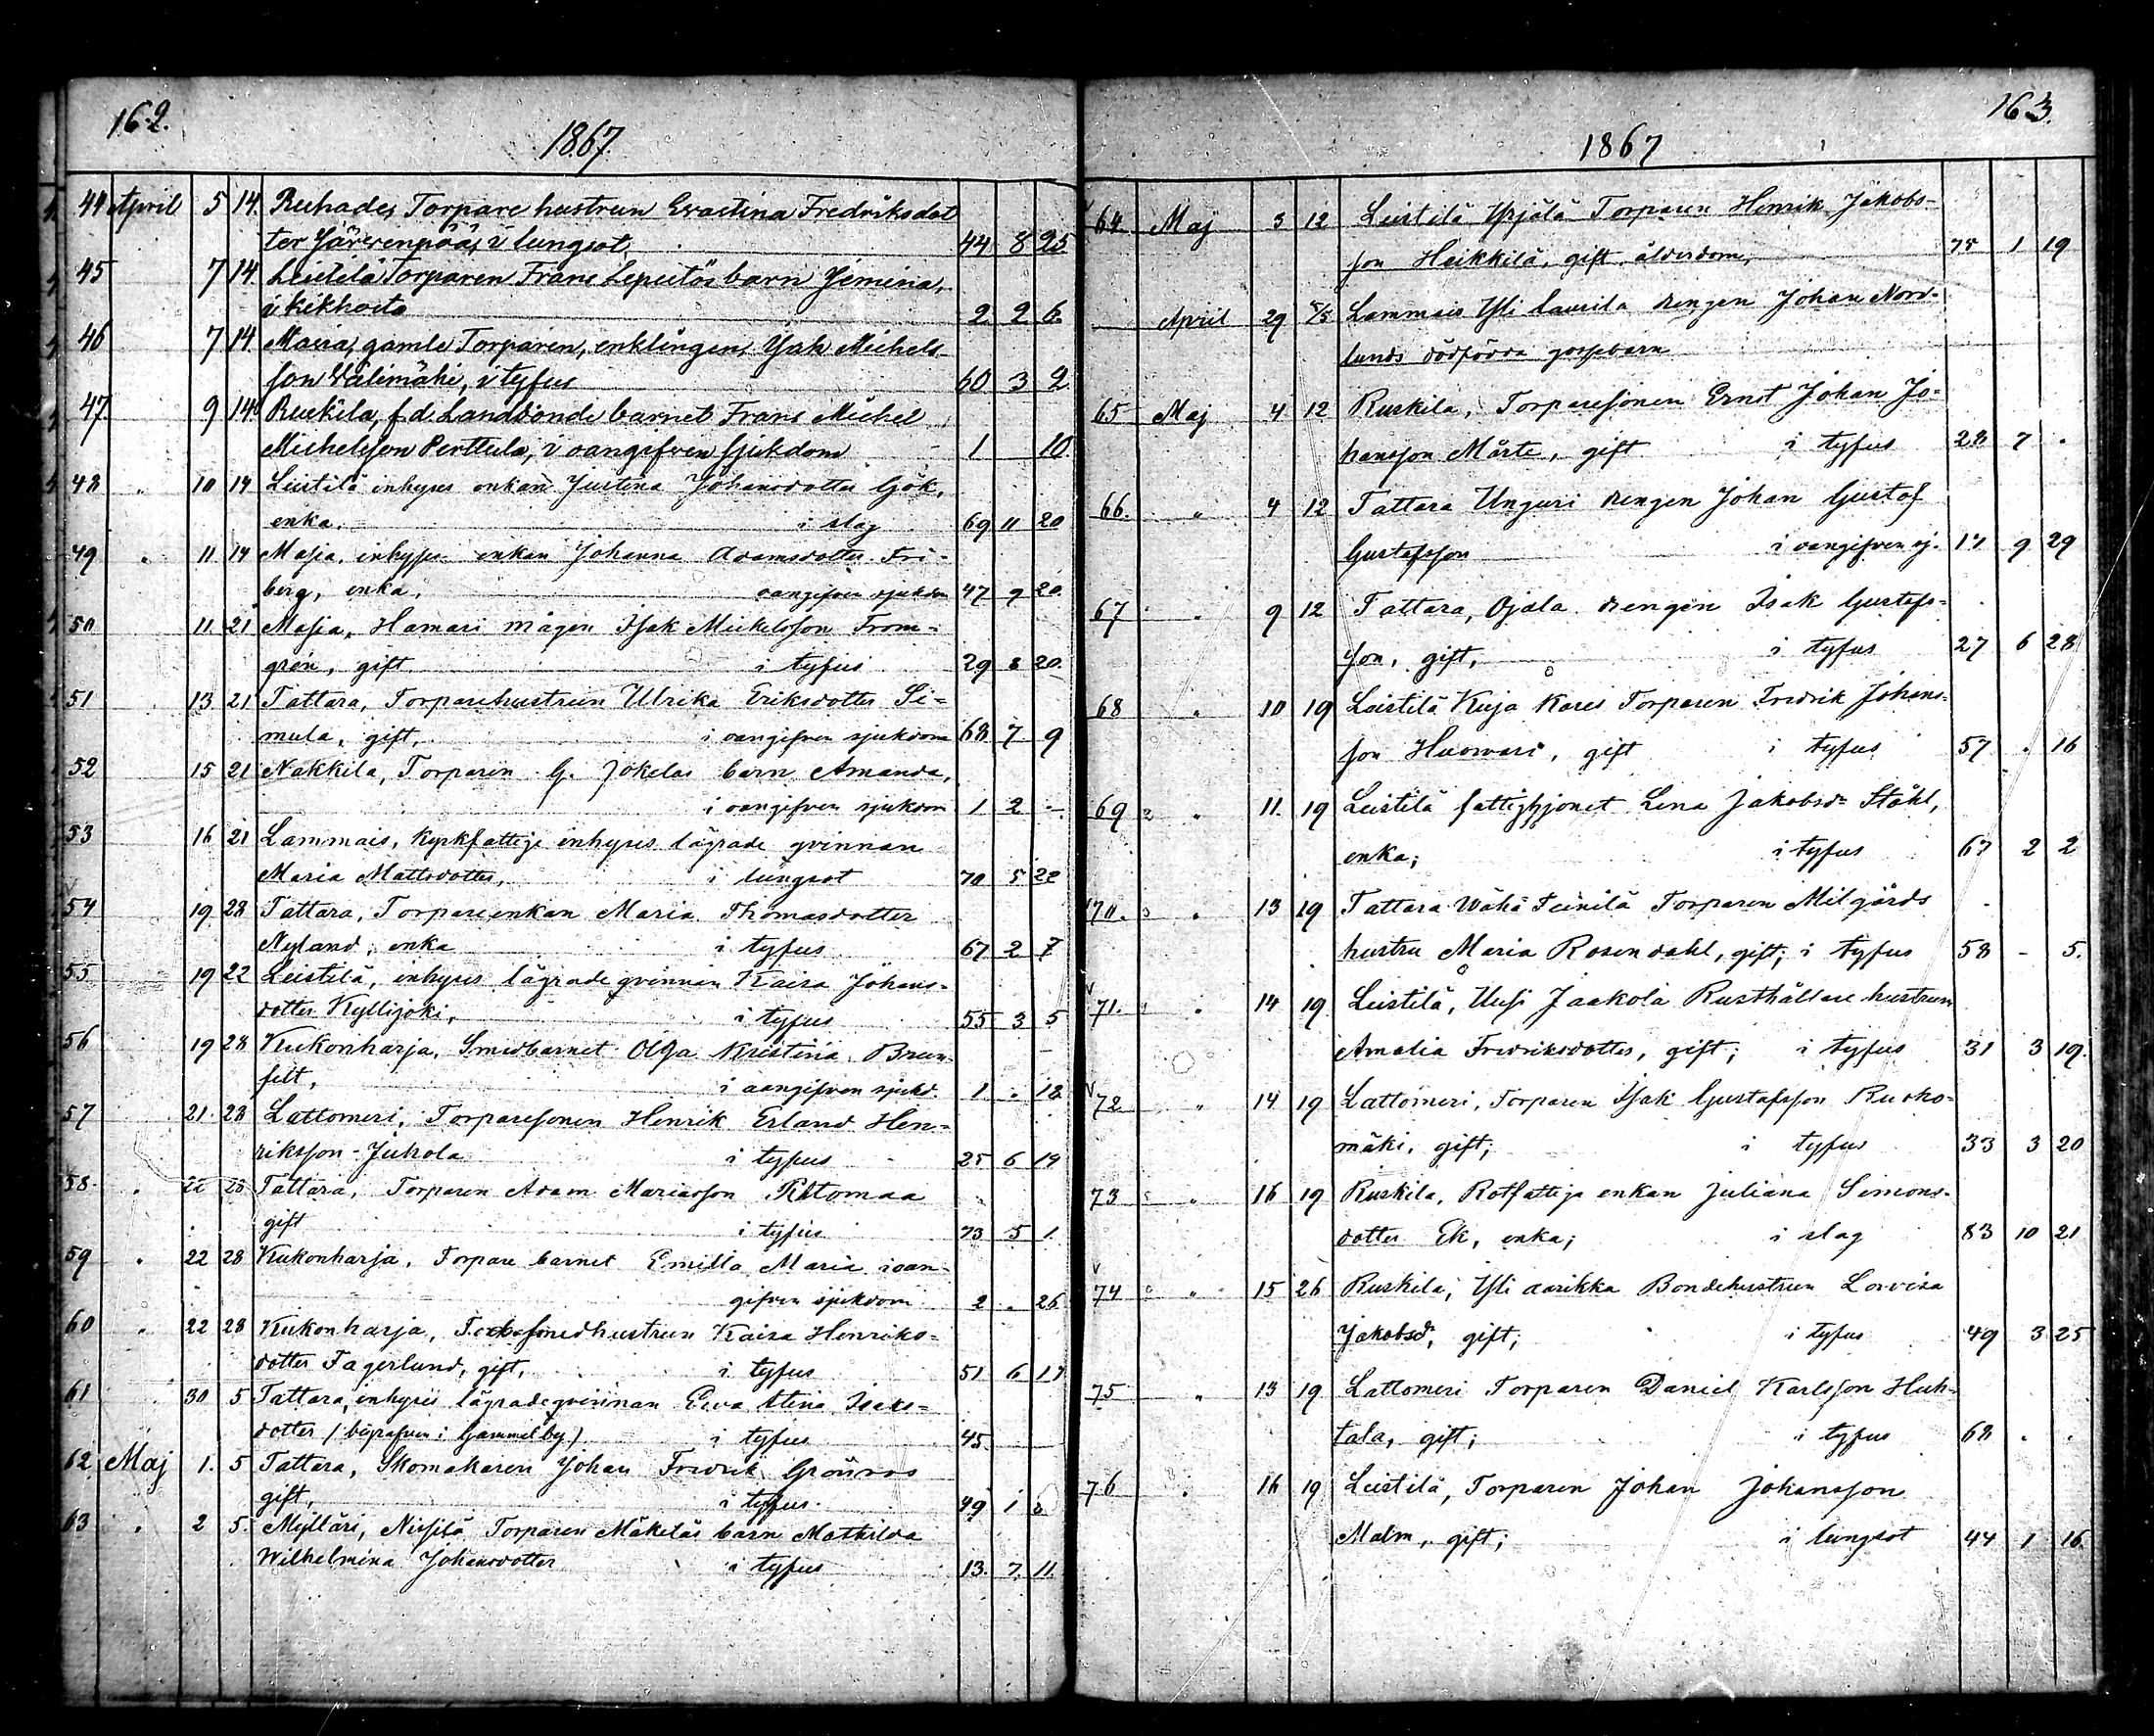 162.
1867.
44 April 5 14. Ruhades Torpare hustrun Evastina Fredriksdot
ter Järvenpää, i lungsot. 44 8 25
45 7 14. Leistilä Torparen Frans barn
i kikhosta 2 2 6.
46 7 14 gamle Torparen, enklingen, Isak Michels
son Välimäki, i tyfus 60 3 2.
47. 9 14 Ruskila, f.d. Landbonde barnet Frans Michel
Michelsson Perttula, i oangifven sjukdom 1 10.
48 " 10 14 Leistilä inhyses enkan Justina Johansdotter Gök,
enka. i slag 69 11 20
49 " 11. 14 Masia, inhyses enkan Johanna Adamsdotter Fri-
berg, enka, oangifven sjukdom 47 9 20.
50 11. 21 Masia, Hamari mågen Isak Mickelsson From-
grén, gift i tyfus 29 8 20.
51 13 21 Tattara, Torparehustrun Ulrika Eriksdotter Si=
mula, gift, i oangifven sjukdom 68 7 9
52 15 21 Nakkila, Torparen G. Jokelas barn Amanda,
i oangifven sjukdom 1 2 -.
53 16 21 Lammais, Kyrkfattige inhyses lägrade qvinnan
Maria Mattsdotter, i lungsot 70 5 22
54 19 28 Tattara, Torpareenkan Maria Thomasdotter
Nyland, enka i tyfus 67 2 7
55 19 22 Leistilä, inhyses lägrade qvinnan Kaisa Johans-
dotter Kyllijoki, i tyfus 55 3 5
56 19 28 Kukonharja, Smedbarnet Olga Kristina Brun-
felt, i oangifven sjukd. 1 . 18.
57 21. 28 Lattomeri, Torparesonen Henrik Erland Hen-
riksson-Juhola i tyfus 25 6 14
58. . 22 28 Tattara, Torparen Adam Mariasson Ritomaa
gift i tyfus 73 5 1.
59 . 22 28 Kukonharja, Torpare barnet Emilla Maria i oan-
gifven sjukdom 2 . 26
60 . 22 28 Kukonharja, smedhustrun Kaisa Henriks=
dotter Fagerlund, gift, i tyfus 51 6 17
61 30 5 Tattara, inhyses lägradeqvinnan Ewa Stina Isaks=
dotter (begrafven i Gammelby) i tyfus 45.
62. Maj 1. 5 Tattara, Skomakaren Johan Fredrik Grönros
gift, i tyfus. 49 1
63 . 2 5. Mylläri, Torparen Mäkeläs barn Mathilda
Wilhelmina Johansdotter i tyfus 13. 7. 11.
163.
1867
64 Maj 3 12 Leistilä Torparen Henrik Jakobs-
son Heikkilä, gift ålderdom, 75 1 19
April 29 5/5 Lammais Yli laurila drengen Johan Nord-
lunds dödfödda gossebarn
65 Maj 4 12 Ruskila, Torparesonen Ernst Johan Jo-
hansson Mårte, gift i tyfus 28 7 .
66. " 4 12 Tattara Unguri drengen Johan Gustaf
Gustafsson i oangifven sj. 17 9 29
67 . 9 12 Tattara, Ojala drengen Isak Gustafs-
son, gift, i tyfus 27 6 28
68 . 10 19 Leistilä Kuja Kares Torparen Fredrik Johans-
son Huovari, gift i tyfus 57 . 16
69 . 11. 19 Leistilä fattighjonet Lena Jakobsdr Ståhl,
enka; i tyfus 67 2 2
70. . 13 19 Tattara Wähä Teinilä Torparen Milgårds
hustru Maria Rosendahl, gift; i tyfus 58 - 5.
71. . 14 19 Leistilä, Uusi Jaakola Rusthållare hustrun
Amalia Fredriksdotter, gift; i tyfus 31 3 19.
72 " 14 19 Lattomeri, Torparen Isak Gustafsson Rusko-
mäki, gift; i tyfus 33 3 20
73 " 16 19 Ruskila, Rotfattiga enkan Juliana Simons-
dotter Ek, enka; i slag 83 10 21
74 " 15 26 Ruskila, Yli aarikka Bondehustrun Lovisa
Jakobsdr, gift; i tyfus 49 3 25
75 " 13 19 Lattomeri Torparen Daniel Karlsson Huh-
tala, gift; i tyfus 68 . .
76 . 16 19 Leistilä, Torparen Johan Johansson
Malm, gift; i lungsot 44 1 16.